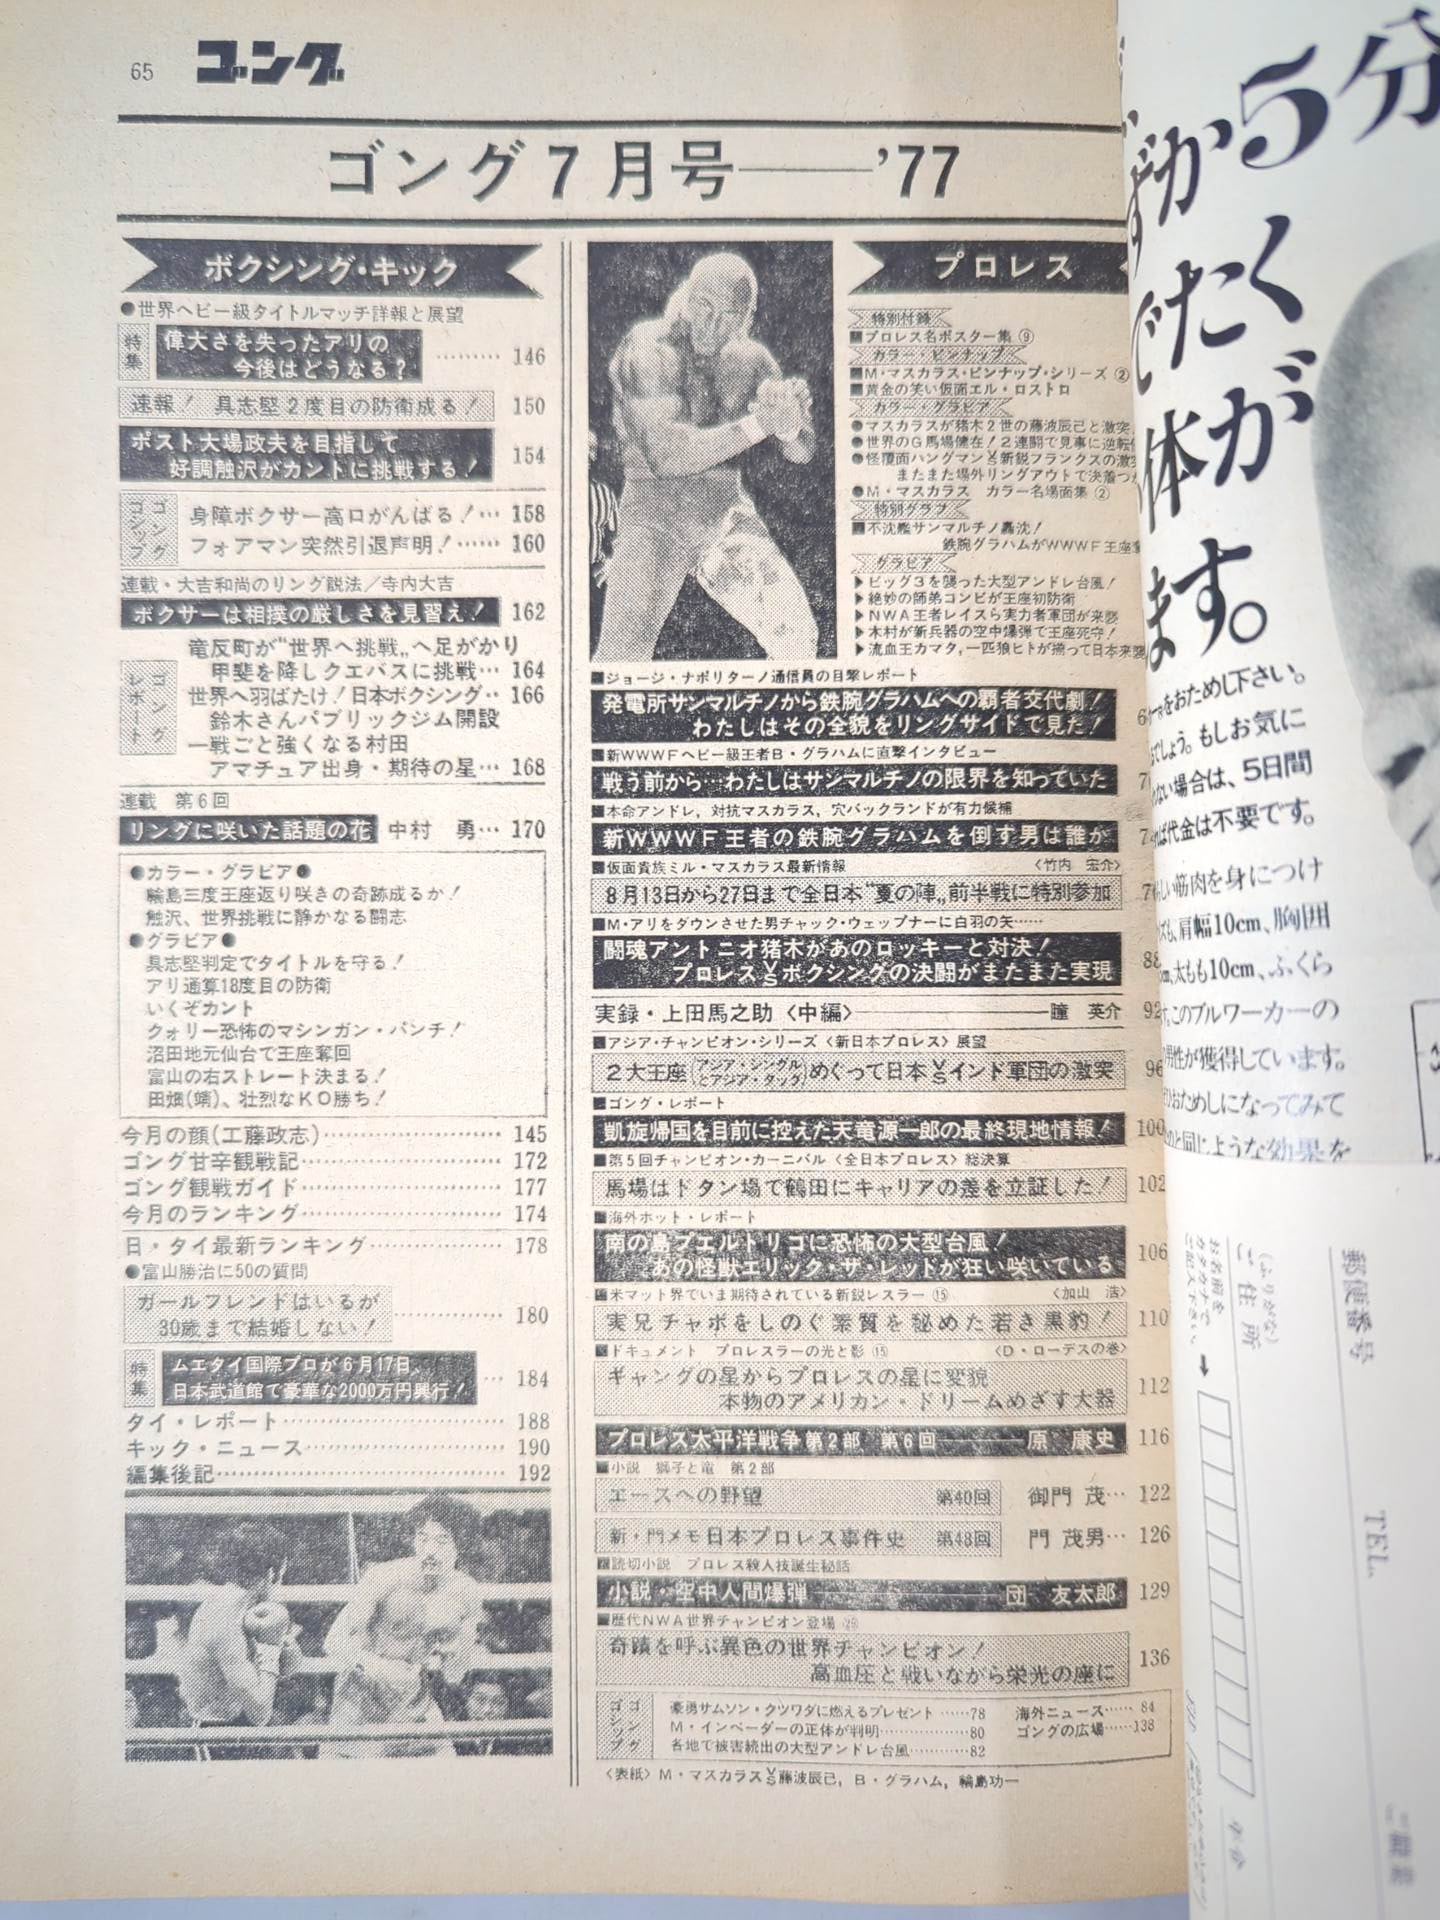 65 ゴング
ゴング7月号——'77
ボクシング・キック
●世界ヘビー級タイトルマッチ詳報と展望
特集 偉大さを失ったアリの
今後はどうなる？ ……… 146
速報！ 具志堅2度目の防衛成る！ 150
ポスト大場政夫を目指して
好調触沢がカントに挑戦する！ 154
ゴングゴシップ
身障ボクサー高口がんばる！… 158
フォアマン突然引退声明！…… 160
連載・大吉和尚のリング説法／寺内大吉
ボクサーは相撲の厳しさを見習え！ 162
ゴングレポート
竜反町が"世界へ挑戦„へ足がかり
甲斐を降しクエバスに挑戦… 164
世界へ羽ばたけ！日本ボクシング‥ 166
鈴木さんパブリックジム開設
一戦ごと強くなる村田
アマチュア出身・期待の星… 168
連載 第6回
リングに咲いた話題の花 中村 勇… 170
●カラー・グラビア●
輪島三度王座返り咲きの奇跡成るか！
触沢、世界挑戦に静かなる闘志
●グラビア●
具志堅判定でタイトルを守る！
アリ通算18度目の防衛
いくぞカント
クォリー恐怖のマシンガン・パンチ！
沼田地元仙台で王座奪回
富山の右ストレート決まる！
田畑(靖)、壮烈なKO勝ち！
今月の顔(工藤政志)………………… 145
ゴング甘辛観戦記…………………… 172
ゴング観戦ガイド…………………… 177
今月のランキング…………………… 174
日・タイ最新ランキング…………… 178
●富山勝治に50の質問
ガールフレンドはいるが
30歳まで結婚しない！ …… 180
特集 ムエタイ国際プロが6月17日、
日本武道館で豪華な2000万円興行！ … 184
タイ・レポート……………………… 188
キック・ニュース…………………… 190
編集後記……………………………… 192
プロレス
特別付録
■プロレス名ポスター集⑨
カラー・ピンナップ
■M・マスカラス・ピンナップ・シリーズ②
■黄金の笑い仮面エル・ロストロ
カラー・グラビア
●マスカラスが猪木2世の藤波辰己と激突
●世界のG馬場健在！2連闘で見事に逆転
●怪覆面ハングマンVS新鋭フランクスの激
またまた場外リングアウトで決着つ
●M・マスカラス カラー名場面集②
特別グラフ
■不沈艦サンマルチノ轟沈！
鉄腕グラハムがWWWF王座奪
グラビア
▶ビッグ3を襲った大型アンドレ台風！
▶絶妙の師弟コンビが王座初防衛
▶NWA王者レイスら実力者軍団が来襲
▶木村が新兵器の空中爆弾で王座死守！
▶流血王カマタ，一匹狼ヒトが揃って日本来襲
■ジョージ・ナポリターノ通信員の目撃レポート
発電所サンマルチノから鉄腕グラハムへの覇者交代劇！
わたしはその全貌をリングサイドで見た！ 6
■新WWWFヘビー級王者B・グラハムに直撃インタビュー
戦う前から…わたしはサンマルチノの限界を知っていた 7
■本命アンドレ，対抗マスカラス，穴バックランドが有力候補
新WWWF王者の鉄腕グラハムを倒す男は誰か 7
■仮面貴族ミル・マスカラス最新情報 〈竹内 宏介〉
8月13日から27日まで全日本"夏の陣„前半戦に特別参加 7
■M・アリをダウンさせた男チャック・ウェップナーに白羽の矢……
闘魂アントニオ猪木があのロッキーと対決！
プロレスVSボクシングの決闘がまたまた実現 88
実録・上田馬之助〈中編〉————瞳 英介 92
■アジア・チャンピオン・シリーズ〈新日本プロレス〉展望
2大王座（アジア・シングルとアジア・タッグ）めぐって日本VSインド軍団の激突 96
■ゴング・レポート
凱旋帰国を目前に控えた天竜源一郎の最終現地情報！ 100
■第5回チャンピオン・カーニバル〈全日本プロレス〉総決算
馬場はドタン場で鶴田にキャリアの差を立証した！ 102
■海外ホット・レポート
南の島プエルトリコに恐怖の大型台風！
あの怪獣エリック・ザ・レッドが狂い咲いている 106
■米マット界でいま期待されている新鋭レスラー⑮ 〈加山 浩〉
実兄チャボをしのぐ素質を秘めた若き黒豹！ 110
■ドキュメント プロレスラーの光と影⑮ 〈D・ローデスの巻〉
ギャングの星からプロレスの星に変貌
本物のアメリカン・ドリームめざす大器 112
プロレス太平洋戦争第2部 第6回———原 康史 116
■小説 獅子と竜 第2部
エースへの野望 第40回 御門 茂… 122
新・門メモ日本プロレス事件史 第48回 門 茂男… 126
■読切小説 プロレス殺人技誕生秘話
小説・空中人間爆弾————団 友太郎 129
■歴代NWA世界チャンピオン登場
奇蹟を呼ぶ異色の世界チャンピオン！
高血圧と戦いながら栄光の座に 136
ゴングゴシップ
豪勇サムソン・クツワダに燃えるプレゼント ……78
M・インベーダーの正体が判明……………80
各地で被害続出の大型アンドレ台風…………82
海外ニュース…… 84
ゴングの広場……138
〈表紙〉M・マスカラスVS藤波辰己，B・グラハム，輪島功一
ずか5分
でたく
体が
ます。
をおためし下さい。
でしょう。もしお気に
ない場合は、5日間
れば代金は不要です。
しい筋肉を身につけ
も、肩幅10cm、胸囲
cm、太もも10cm、ふくら
このブルワーカーの
男性が獲得しています。
おためしになってみて
と同じような効果を
郵便番号
TEL.
(ふりがな)
ご住所
お名前を
カタカナで
ご記入下さい。
ご職業